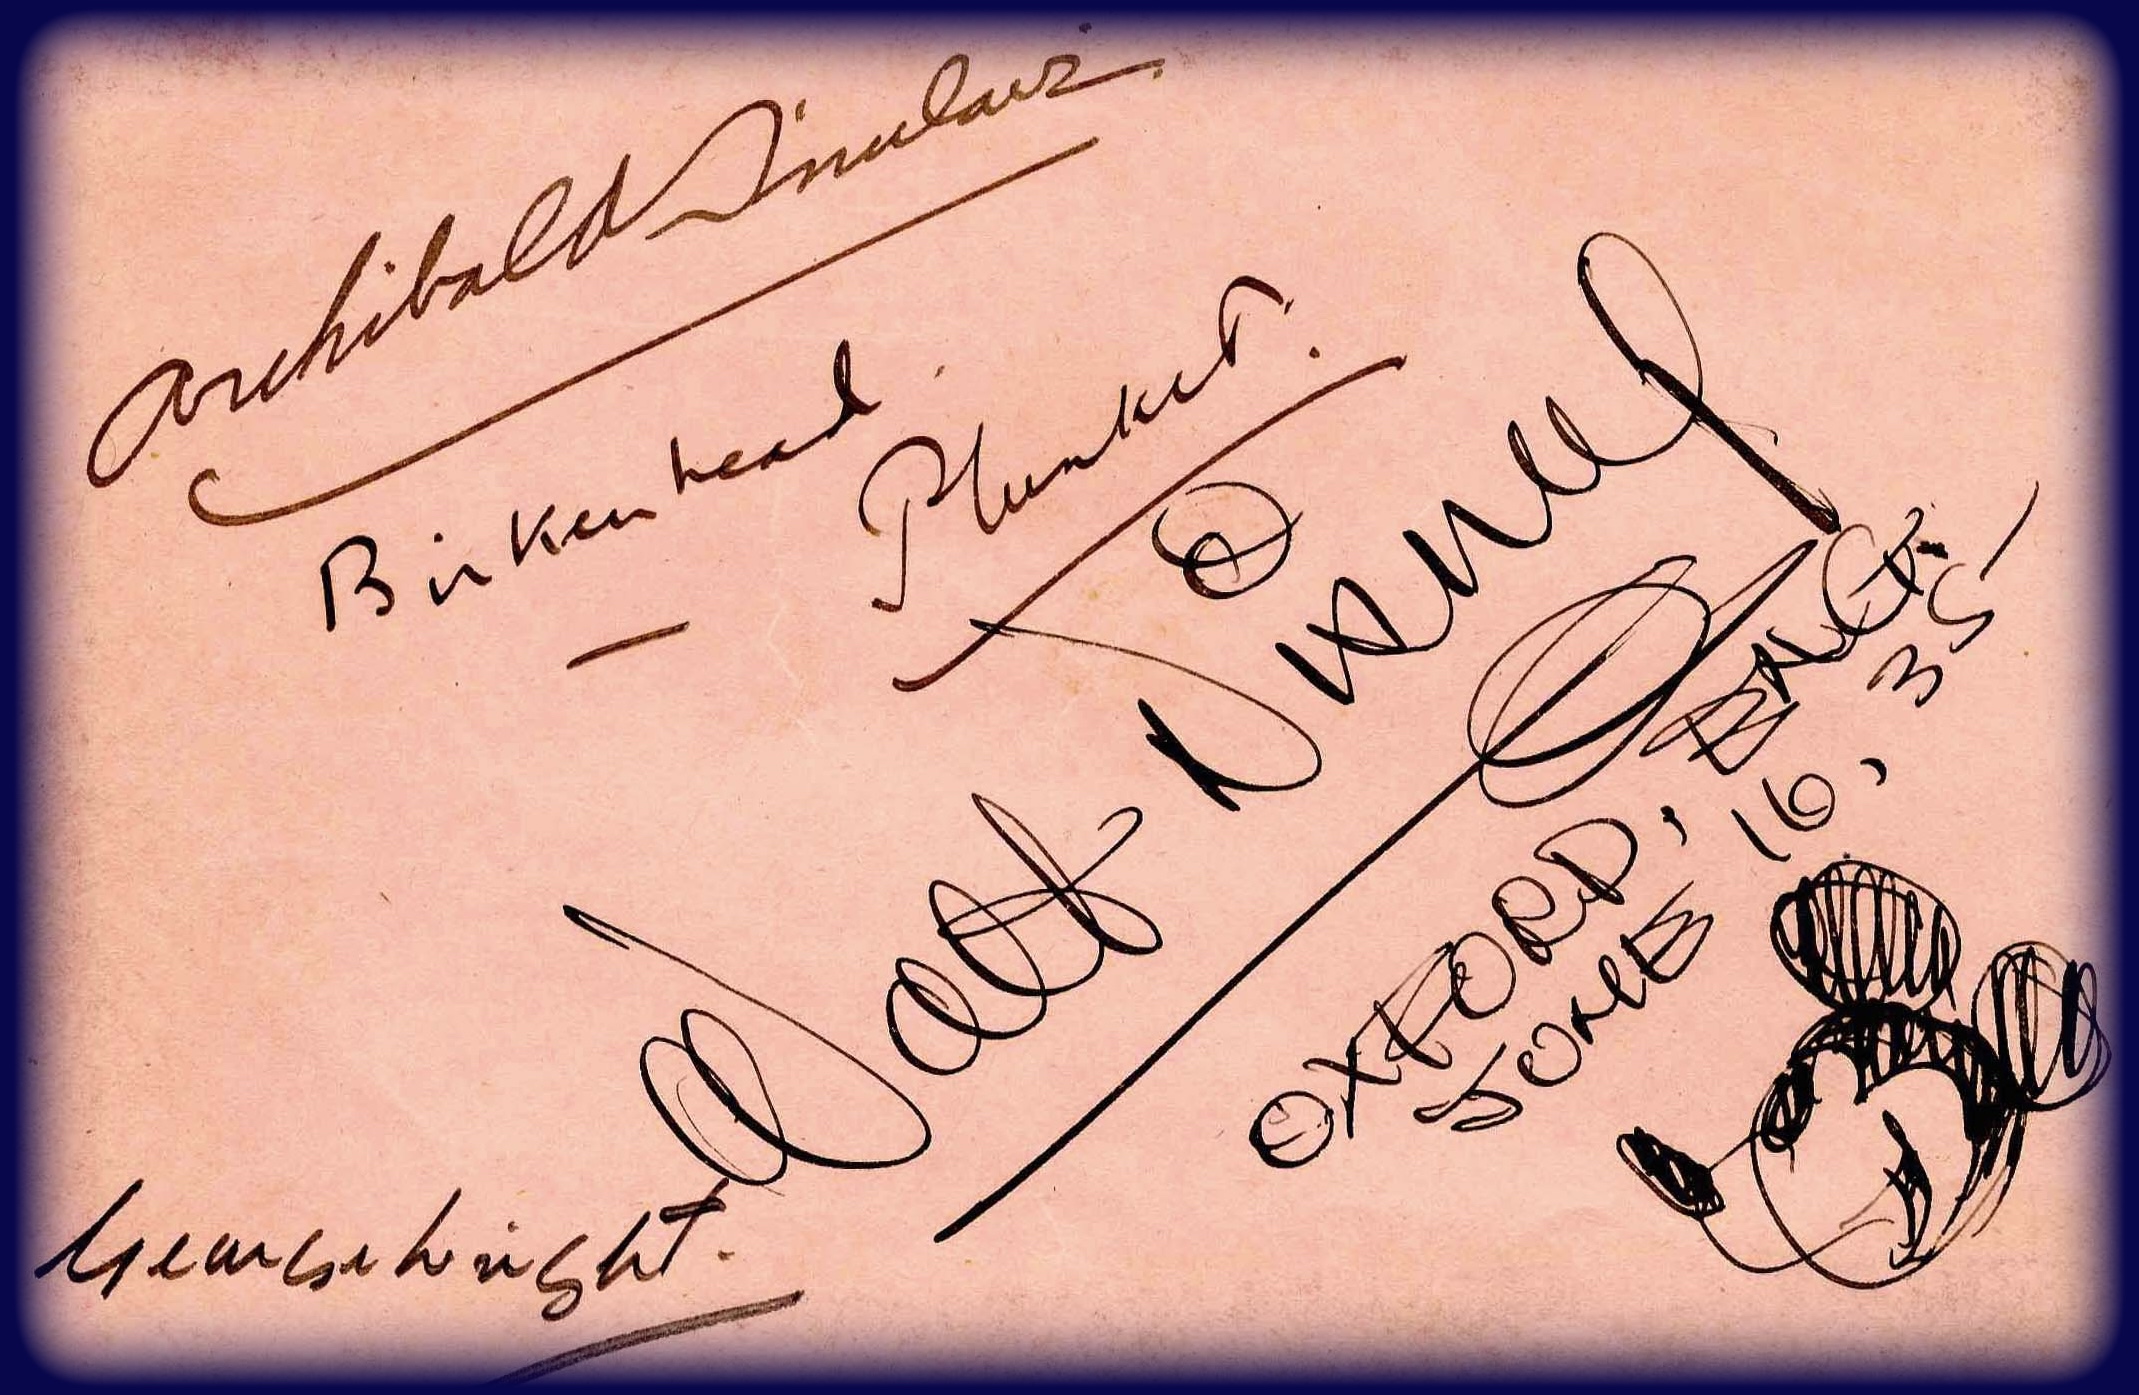 Archibald Sinclair
Birkenhead
Plunket.
Walt Disney
OXFORD, ENG-
JUNE 16, 35-
George Wright.